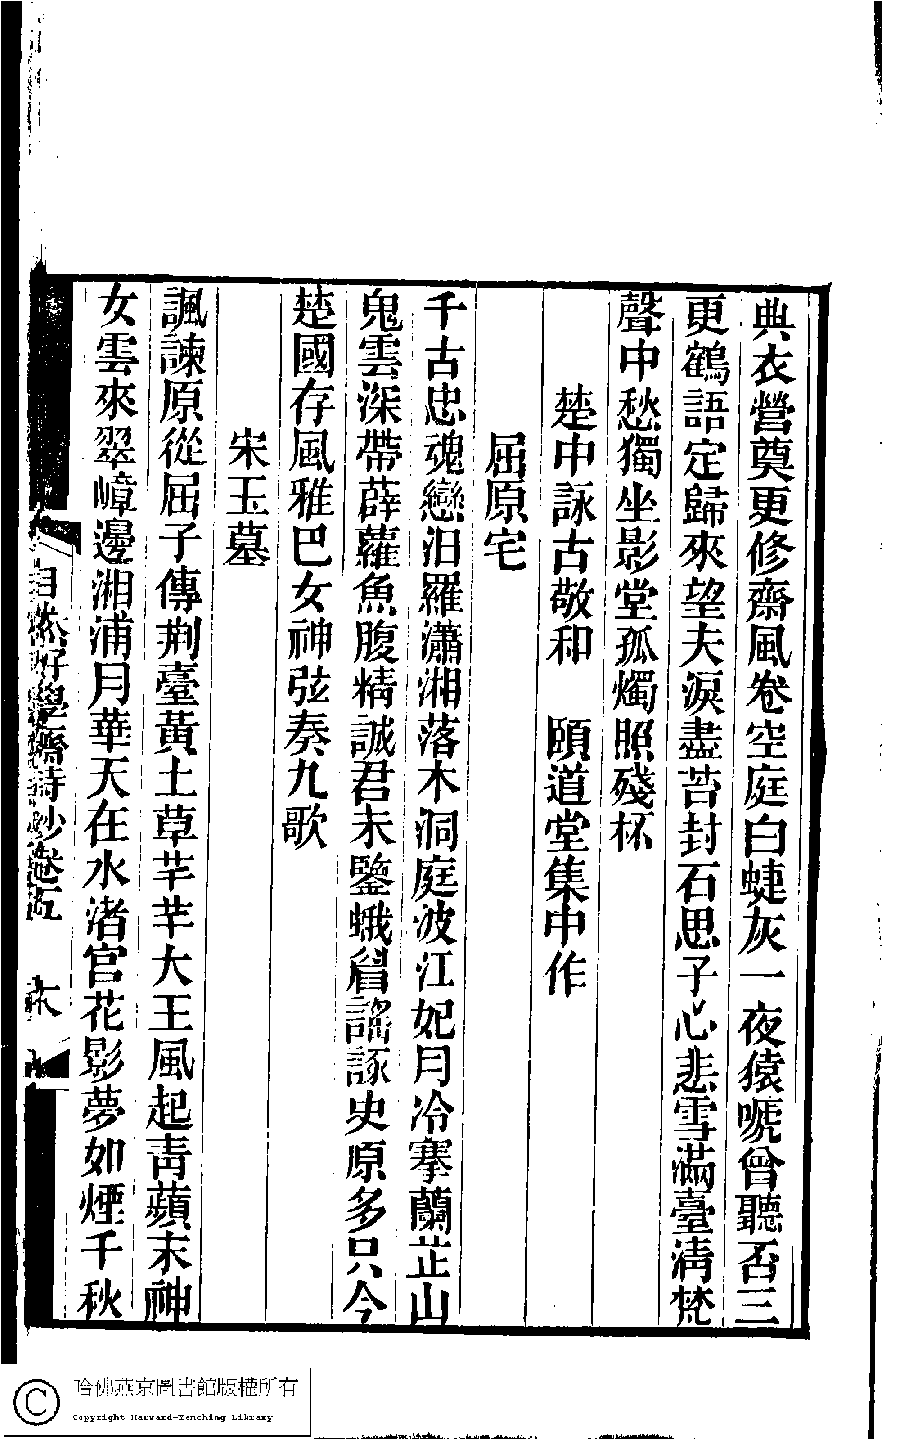 典衣營奠更修齋風卷空庭白蜨灰一夜猿嗁曾聽否三
更鶴語定歸來望夫淚盡苔封石思子心悲雪滿臺淸梵
聲中愁獨坐影堂孤燭照殘杯
楚中詠古敬和　頤道堂集中作
屈原宅
千古忠魂戀汨羅瀟湘落木洞庭波江妃月冷搴蘭芷山
鬼雲深帶薜蘿魚腹精誠君未鑒蛾眉謠諑史原多只今
楚國存風雅巴女神弦奏九歌
宋玉墓
諷諫原從屈子傳荆臺黃土草芊芊大王風起靑蘋末神
女雲來翠嶂邊湘浦月華天在水渚宮花影夢如煙千秋
自然好學齋詩鈔卷五
哈佛燕京圖書館版權所有
Copyright Harvard-Yenching Library